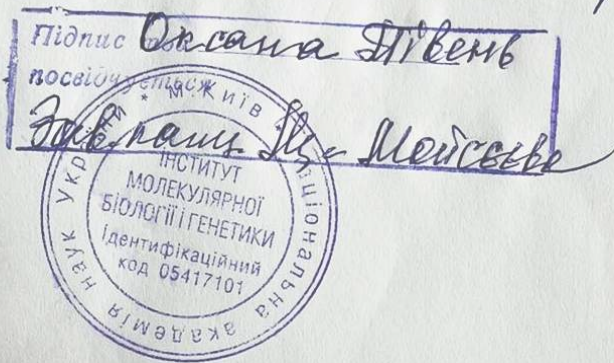 Підпис Оксана Півень
посвідчується
Зав. канц. Мойсєєва
* м. Київ * Національна академія наук України
ІНСТИТУТ
МОЛЕКУЛЯРНОЇ
БІОЛОГІЇ І ГЕНЕТИКИ
Ідентифікаційний
код 05417101